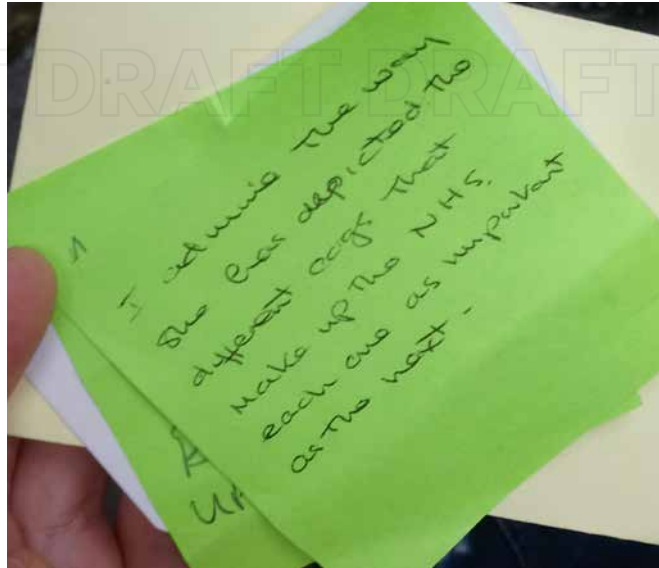 DRAFT DRAFT
1
I admire the way
she has depicted the
different cogs that
make up the NHS.
each one as important
as the next.
UP